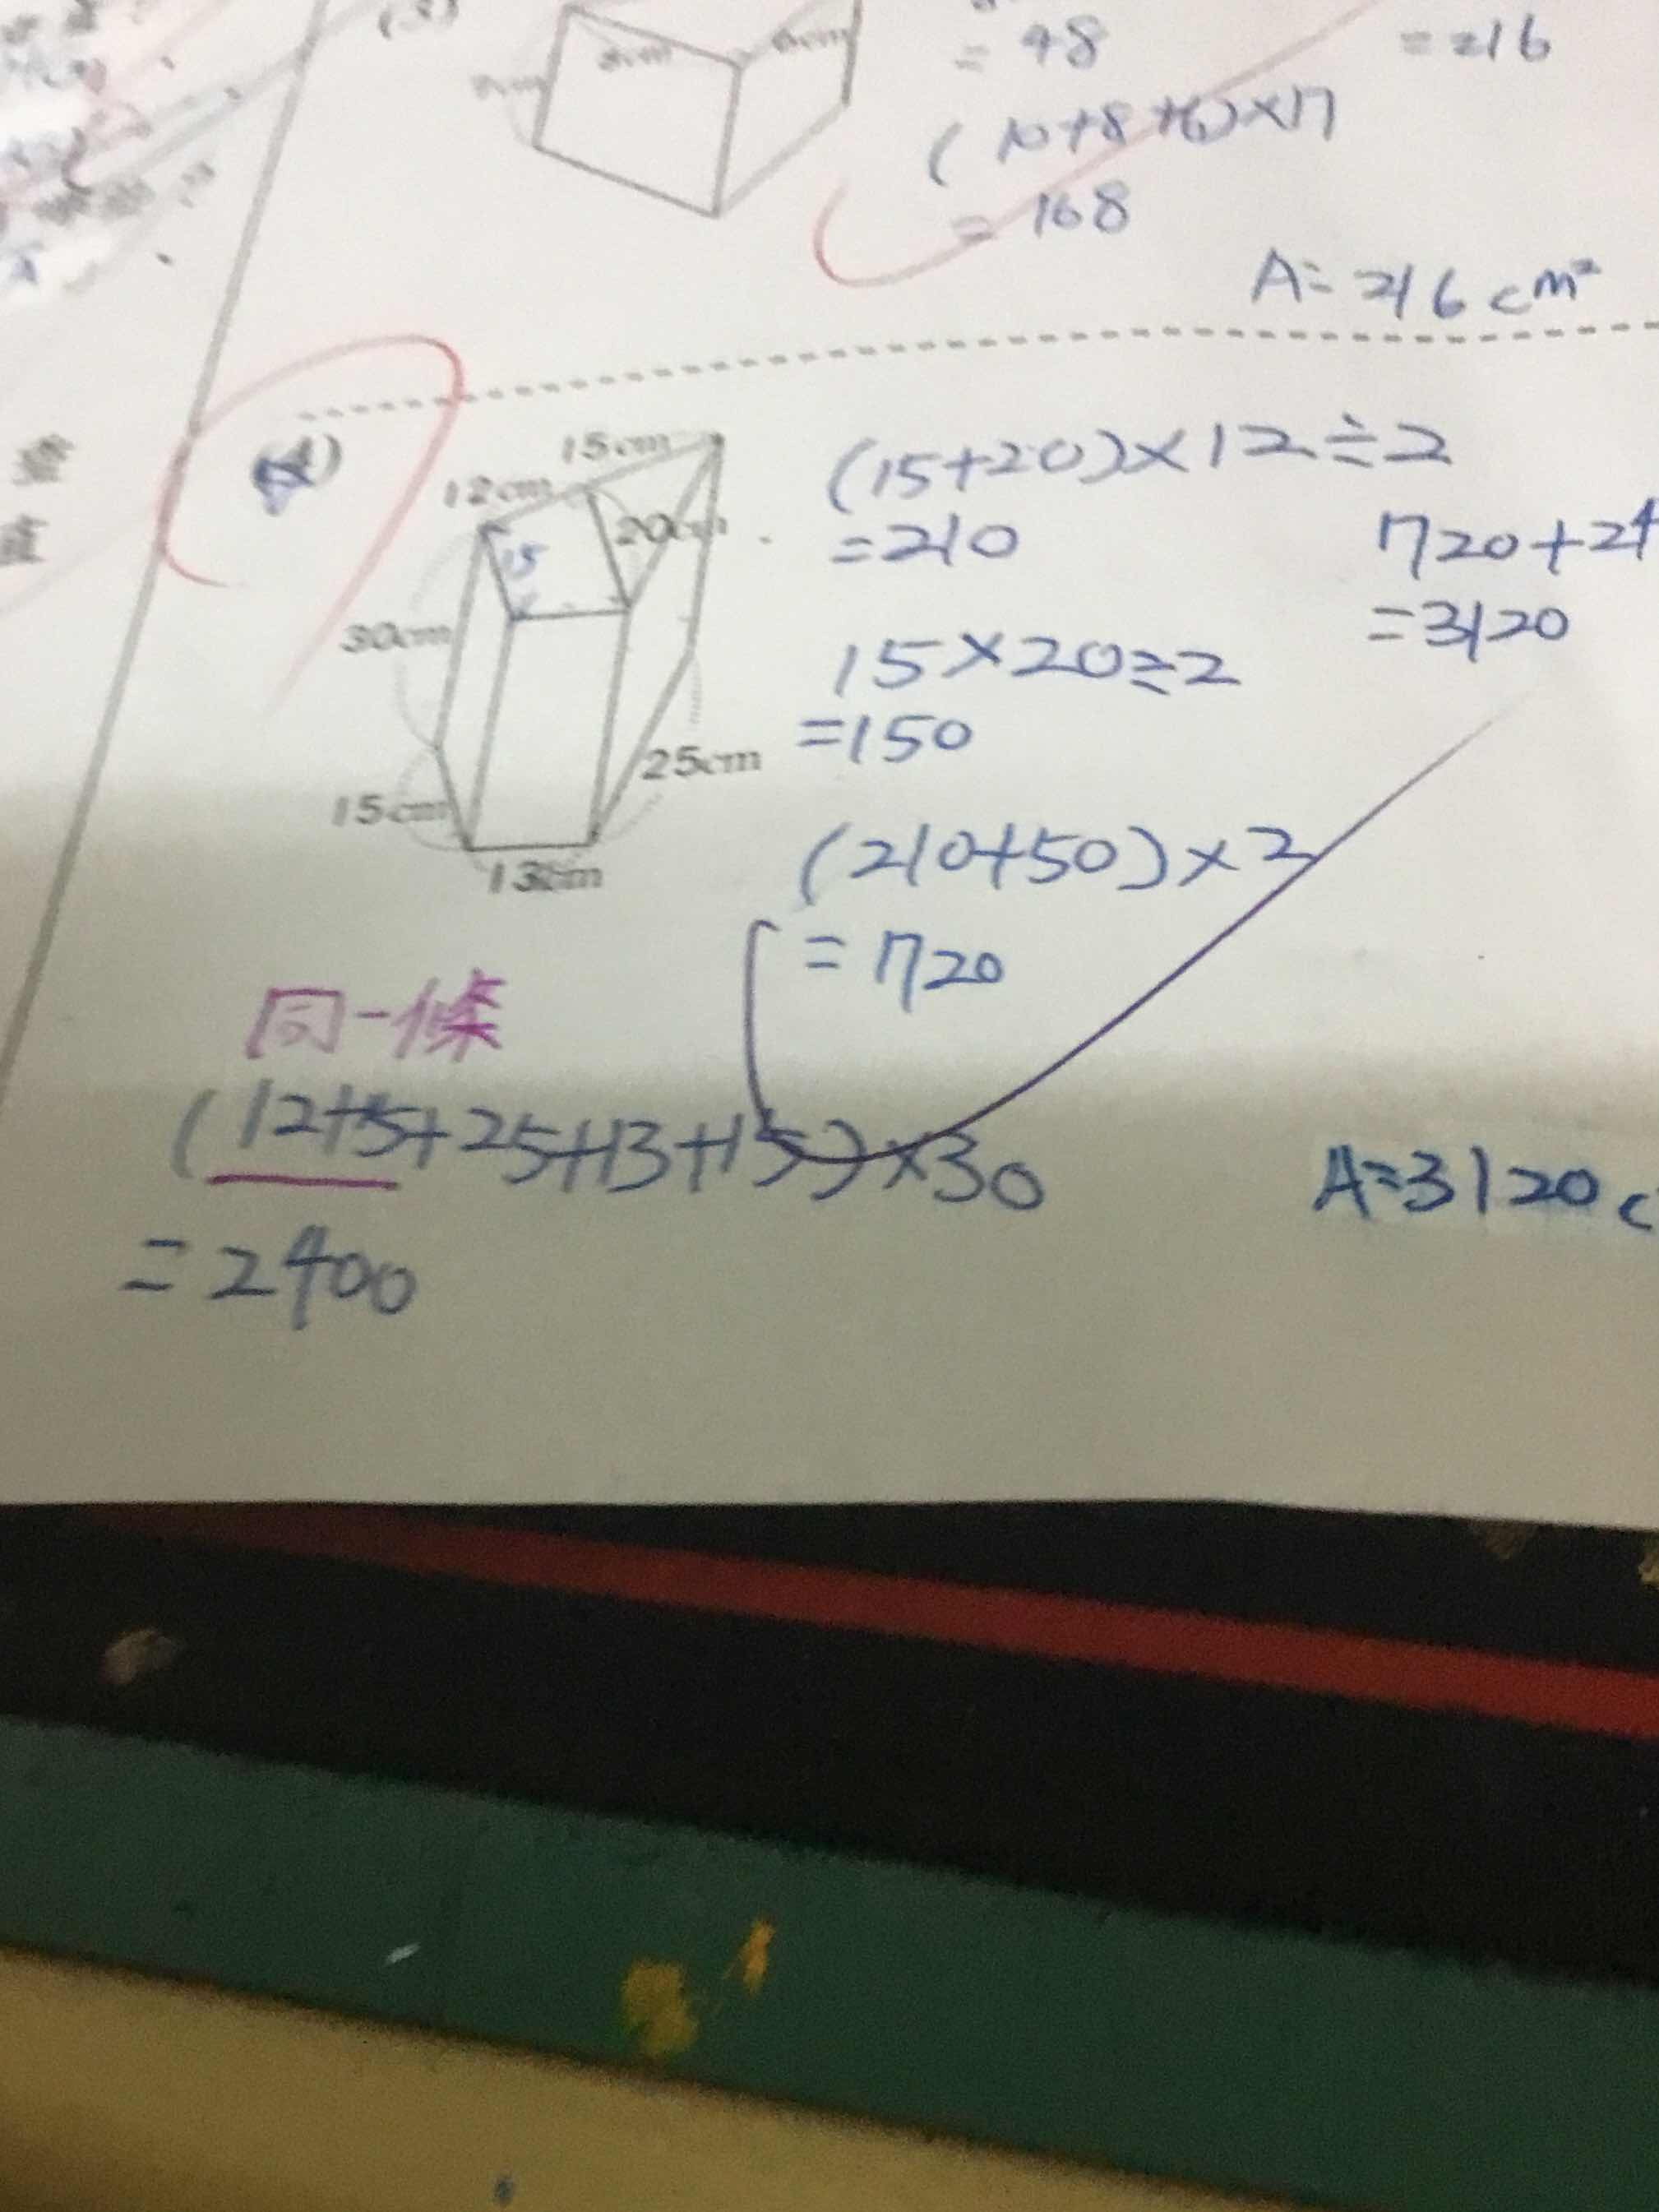 (3)
8cm
6cm
= 48
= 216
(10+8+6)×7
= 168
A= 216 cm²
(4)
15cm
12cm
20cm
15
30cm
25cm
15cm
13cm
(15+20)×12÷2
=210
15×20÷2
=150
(210+50)×2
=720
720+24
=3120
同一條
(12+15+25+13+15)×30
=2400
A=3120 c